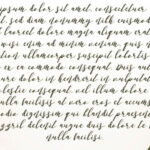 ipsum dolor sit amet, consectetuer
elit, sed diam nonummy nibh euismod
ut laoreet dolore magna aliquam erat
wisi enim ad minim veniam, quis
tion ullamcorper suscipit lobortis
ex ea commodo consequat. Duis aut
dolor in hendrerit in vulputate
molestie consequat, vel illum dolore
nulla facilisis at vero eros et accumsan
odio dignissim qui blandit praesent
zzril delenit augue duis dolore te
nulla facilisi.